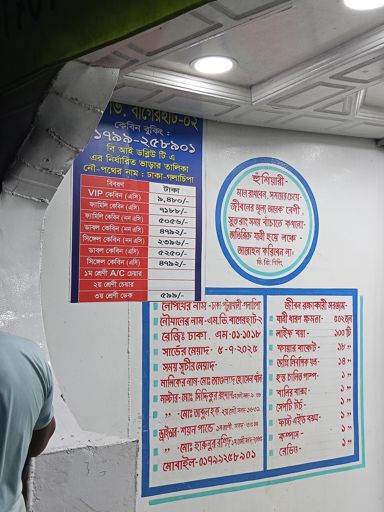 ভি. বাগেরহাট-০২
কেবিন বুকিং :
০১৭৯৯-২৫৮৯০১
বি আই ডব্লিউ টি এ
এর নির্ধারিত ভাড়ার তালিকা
নৌ-পথের নাম : ঢাকা-গলাচিপা
বিবরণ টাকা
VIP কেবিন (এসি) ৯,৪৮০/-
ফ্যামিলি কেবিন (এসি) ৭১৮৮/-
ফ্যামিলি কেবিন (নন এসি) ৫০৫৬/-
ডাবল কেবিন (নন এসি) ৪৭৯২/-
সিঙ্গেল কেবিন (নন এসি) ২৩৯৬/-
ডাবল কেবিন (এসি) ৫২৫০/-
সিঙ্গেল কেবিন (এসি) ৪৭৯২/-
১ম শ্রেণী A/C চেয়ার
২য় শ্রেণী চেয়ার
৩য় শ্রেণী ডেক ৫৯৯/-
হুঁশিয়ারী-
মনে রাখবেন, সময়ের চেয়ে
জীবনের মূল্য অনেক বেশী,
সুতরাং সময় বাঁচাতে কখনো
অতিরিক্ত যাত্রী হয়ে লঞ্চে
আরোহন করিবেন না।
নৌপথের নাম -ঢাকা পটুয়াখালী-গলাচিপা
নৌযানের নাম-এম.ভি.বাগেরহাট-২
রেজিঃ ঢাকা. এম-০১-১০১৮
সার্ভের মেয়াদ- ৫-৭-২০২৫
সময় সূচীর মেয়াদ-
মালিকের নাম-মোঃ
মাস্টার-মোঃ সিদ্দিকুর রহমান
" -মোঃ আবুল হক
ড্রাইভার-
" -মোঃ হারুনুর রশিদ
মোবাইল-০১৭৯৯২৫৮৯০১
জীবন রক্ষাকারী সরঞ্জাম-
যাত্রী ধারণ ক্ষমতা- ৪০২জন
লাইফ বয়া - ১০০ টি
ফায়ার বাকেট - ১৮ "
অগ্নি নির্বাপক যন্ত্র- ১৪ "
হস্ত চালিত পাম্প- ১ "
বালির বাক্স- ১ "
সেফটি টর্চ - ১ "
ফাস্ট এইড বক্স- ১ "
কম্পাস - ১ "
রেডিও- ১ "